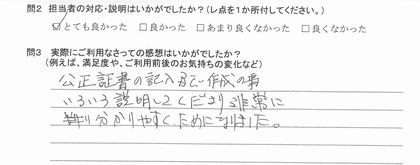 問2 担当者の対応・説明はいかがでしたか?(レ点を1か所付してください。)
☑とても良かった □良かった □あまり良くなかった □良くなかった
問3 実際にご利用なさっての感想はいかがでしたか?
(例えば、満足度や、ご利用前後のお気持ちの変化など)
公正証書の記入及び作成の事
いろいろ説明してくださり非常に
分かりやすくためになりました。